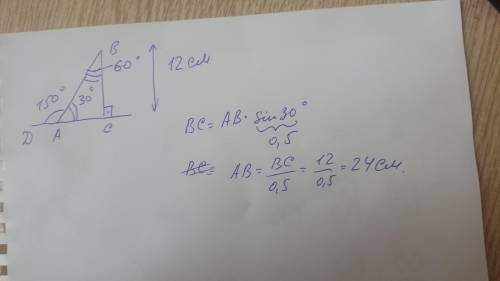 B
60°
12 см
150°
30°
D A C
BC = AB · sin 30°
0,5
BC = AB = BC/0,5 = 12/0,5 = 24 см.